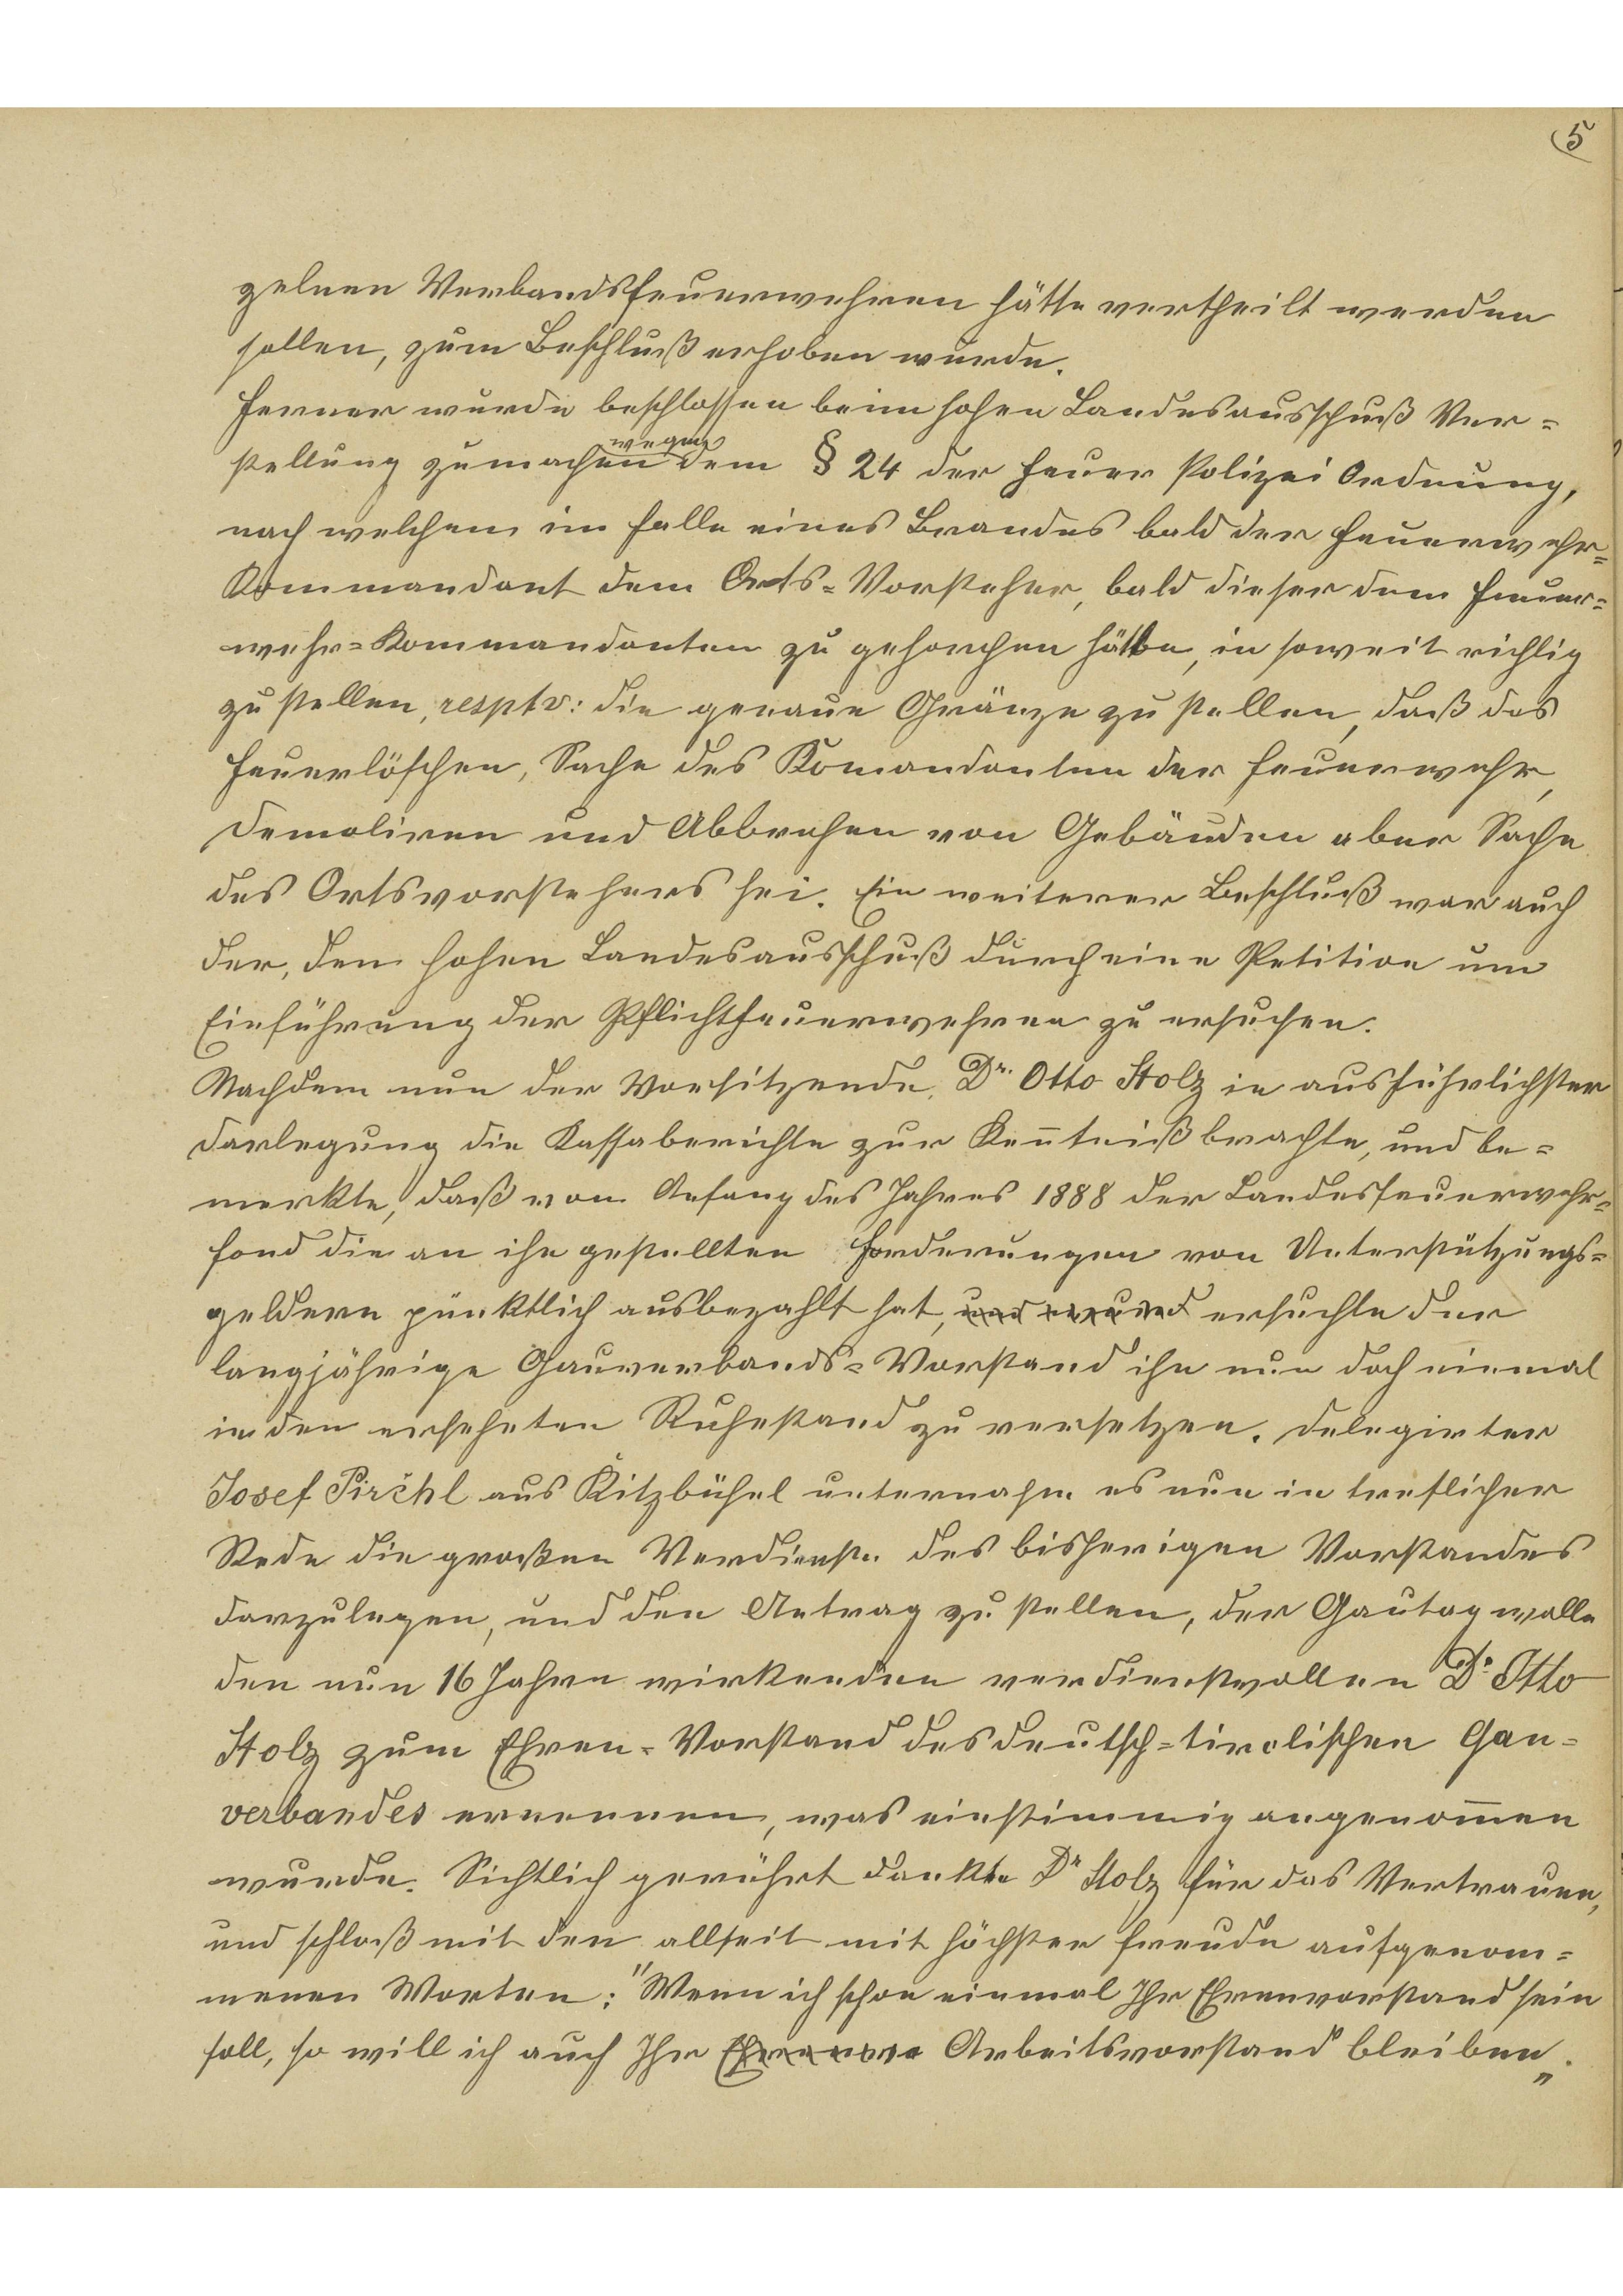 5
zelnen Verbandsfeuerwehren hätte vertheilt werden
sollen, zum Beschluß erhoben wurde.
Ferner wurde beschlossen beim hohen Landesausschuß Ver=
wegen
stellung zumachen dem § 24 der Feuer Polizei Ordnung,
nach welchem im Falle eines Brandes bald der Feuerwehr=
Kommandant dem Orts=Vorsteher, bald dieser dem Feuer=
wehr=Kommandanten zu gehorchen hätte, in soweit richtig
zu stellen, resptv: die genaue Gränze zu stellen, daß das
Feuerlöschen, Sache des Komandanten der Feuerwehr,
Demoliren und Abbrechen von Gebäuden aber Sache
des Ortsvorstehers sei. Ein weiterer Beschluß war auch
der, dem hohen Landesausschuß durch eine Petition um
Einführung der Pflichtfeuerwehren zu ersuchen.
Nachdem nun der Vorsitzende, Dr. Otto Stolz in ausführlichster
Darlegung die Kassaberichte zur Keñtniß brachte, und be=
merkte, daß von Anfang des Jahres 1888 der Landesfeuerwehr=
fond die an ihn gestellten Forderungen von Unterstützungs=
geldern pünktlich ausbezahlt hat, und ersuchte der
langjährige Gauverbands=Vorstand ihn nun doch einmal
in den ersehnten Ruhestand zu versetzen. Delegirter
Josef Pirchl aus Kitzbühel unternahm es nun in treflicher
Rede die großen Verdienste des bisherigen Vorstandes
darzulegen, und den Antrag zu stellen, der Gautag wolle
den nun 16 Jahre wirkenden verdienstvollen Dr. Otto
Stolz zum Ehren=Vorstand des deutsch=tirolischen Gau=
verbandes ernennen, was einstimmig angenom̃en
wurde. Sichtlich gerührt dankte Dr Stolz für das Vertrauen,
und schloß mit den allseit mit höchster Freude aufgenom=
menen Worten: "Wenn ich schon einmal Ihr Ehrenvorstand sein
soll, so will ich auch Ihr Ehrenvors Arbeitsvorstand bleiben„.